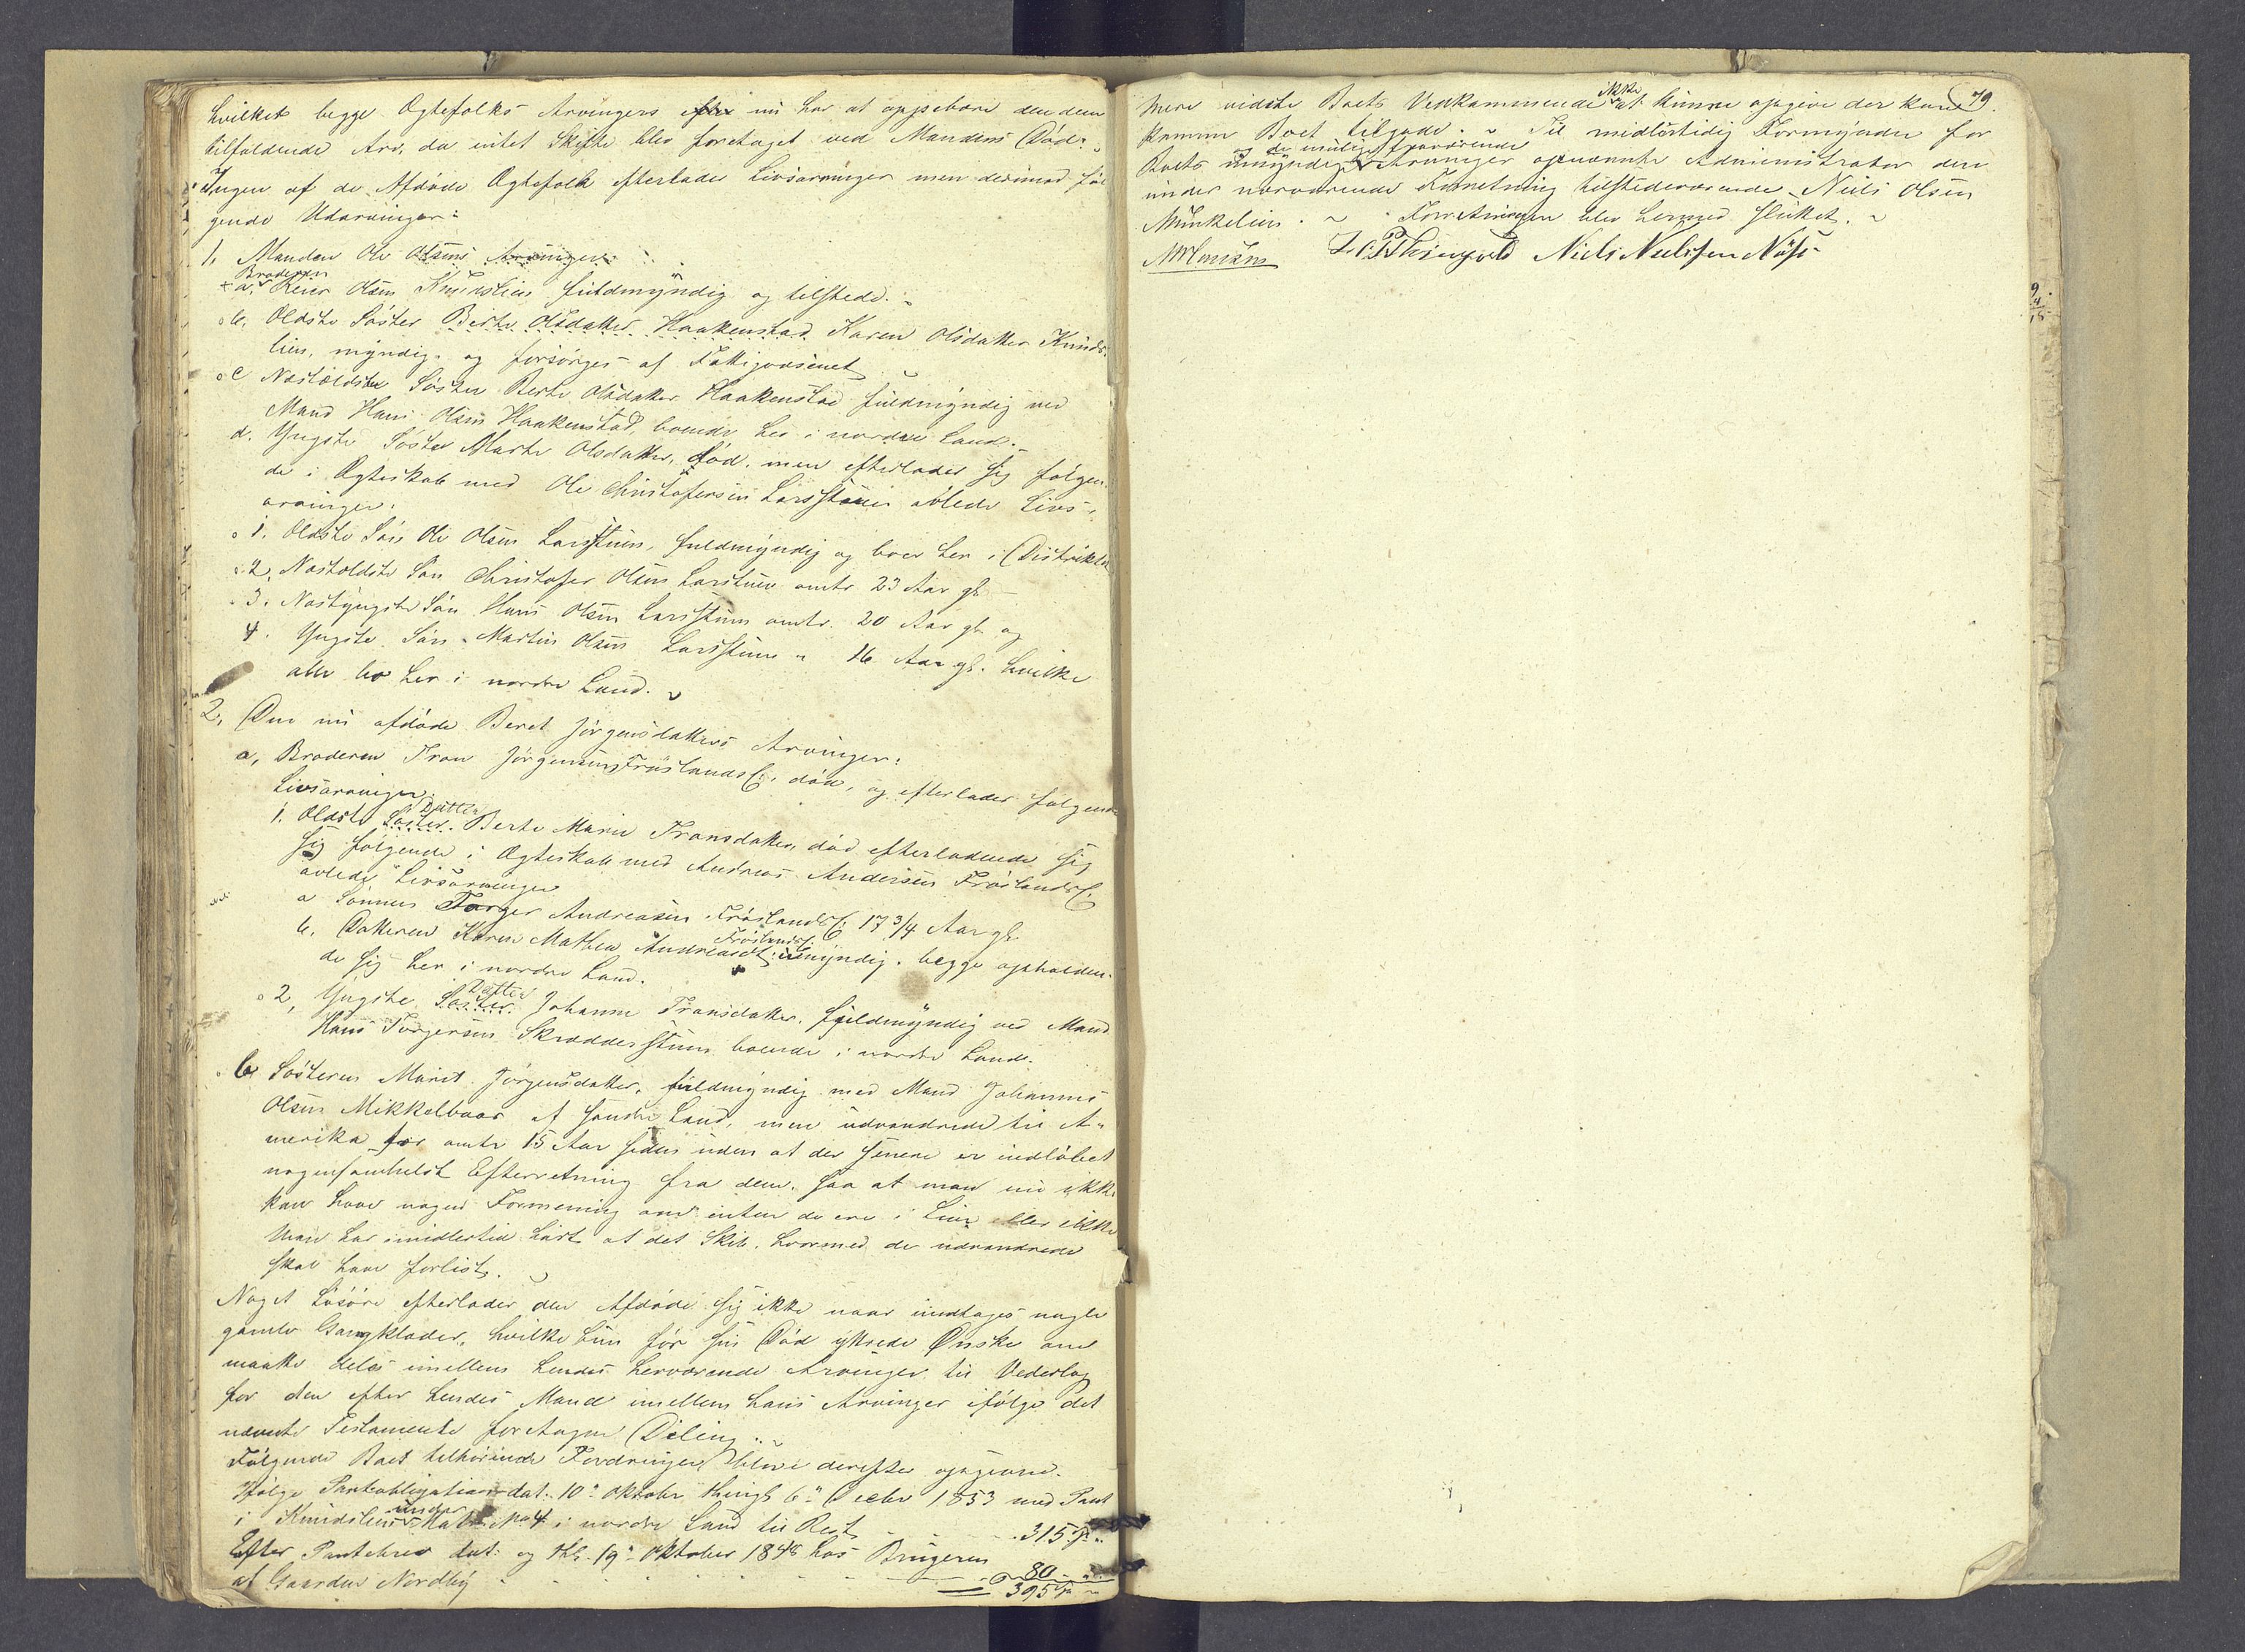 hvilket begge Ægtefolks Arvinger nu har at oppebære den dem
tilfaldende Arv, da intet Skifte blev foretaget ved Mandens Død.
Ingen af de Afdøde Ægtefolk efterlader Livsarvinger men derimod føl
gende Udarvinger:
1. Manden Ole Olsens Arvinger:
Broderen
a. Peder Olsen Knudslien fuldmyndig og tilstede.
b. Ældste Søster Berte Olsdatter Haakenstad Karen Olsdatter Knuds-
lien, myndig og forsørges af Fattigvæsenet
c Næstældste Søster Berte Olsdatter Haakenstad fuldmyndig med
Mand Hans Olsen Haakenstad, boende her i nordre Land.
d. Yngste Søster Marte Olsdatter, død, men efterlader sig følgen-
de i Ægteskab med Ole Christofersen Larsstuen avlede Livs-
arvinger.
1. Ældste Søn Ole Olsen Larsstuen, fuldmyndig og boer her i Distriktet
2. Næstældste Søn Christofer Olsen Larstuen omtr 23 Aar gl.
3. Næstyngste Søn Hans Olsen Larsstuen omtr. 20 Aar gl. og
4. Yngste Søn Martin Olsen Larsstuen " 16 Aar gl. hvilke
alle bo her i nordre Land.
2, Den nu afdøde Beret Jørgensdatters Arvinger.
a, Broderen Tron Jørgensen FrøslandsE. død, og efterlader følgende
Livsarvinger.
Datter
1. Ældste Søster. Berte Marie Tronsdatter, død efterladende sig
sig følgende i Ægteskab med Andreas Andersen FrøslandsE.
avlede Livsarvinger
a Sønnen Torger Andreasen FrøslandsE. 17 3/4 Aar gl.
FrøslandsE.
b. Datteren Karen Mathea Andreasdt. umyndig. begge opholden-
de sig her i nordre Land.
Datter
2, Yngste Søster. Johanne Tronsdatter. fuldmyndig ved Mand
Hans Torgersen Skræddersstuen boende i nordre Land.
b. Søsteren Marit Jørgensdatter, fuldmyndig med Mand Johannes
Olsen Mikkelbaar af søndre Land, men udvandrede til A-
merika for omtr 15 Aar siden uden at der senere er indløbet
nogensomhelst Efterretning fra dem, saa at man nu ikke
kan have nogen Formening om enten de ere i Live eller ikke
Man har imidlertid hørt at det Skib, hvormed de udvandrede
skal have forlist.
Noget Løsøre efterlader den Afdøde sig ikke naar undtages nogle
gamle Gangklæder, hvilke hun før sin Død yttrede Ønske om
maatte deles imellem hendes herværende Arvinger til Vederlag
for den efter hendes Mand imellem hans Arvinger ifølge det
nævnte Testamente foretagne Deling.
Følgende Boet tilhørende Fordringer bleve derefter opgivne.
Ifølge Panteobligation dat. 10de Oktober thingl. 6te Decbr 1853 med Pant
under
i Knudslien Matr. No 4 i nordre Land til Rest 315
Efter Pantebrev dat. og thl. 19de Oktober 1848 hos Brugeren
af Gaarden Nordby 80
395
79.
ikke
Mere vidste Boets Vedkommende at kunne opgive der kunde
komme Boet tilgode. Til midlertidig Formynder for
og de mulige fraværende
Boets umyndige Arvinger opnævnte Administrator den
under nærværende Forretning tilstedeværende Niels Olsen
Munkelien. Forretningen blev hermed sluttet.
Niels Nielsen
9
4
15